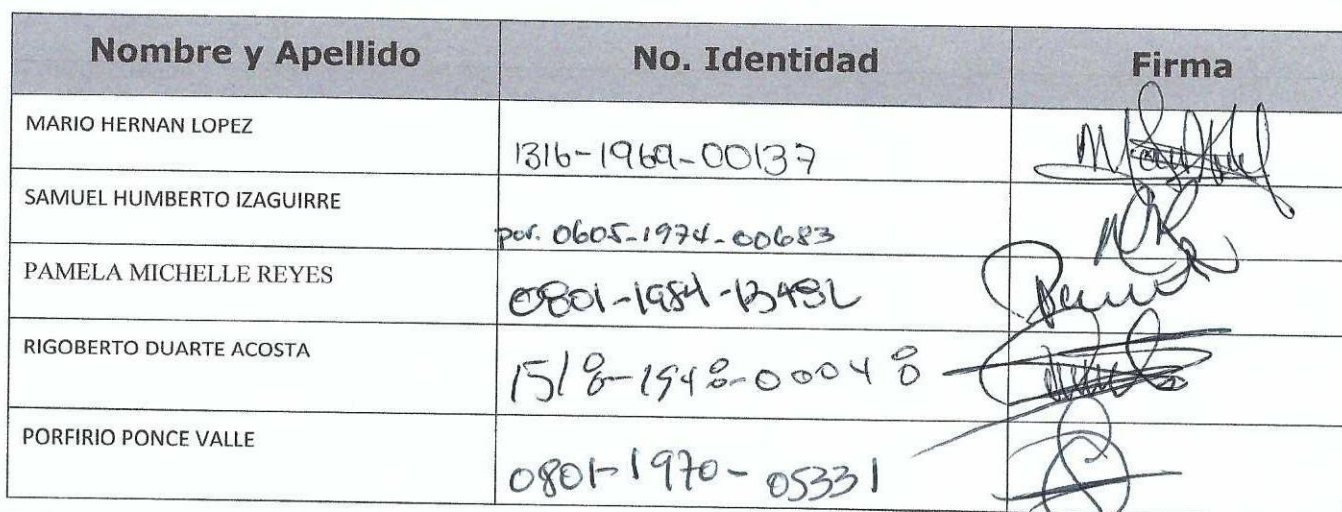 Nombre y Apellido No. Identidad Firma
MARIO HERNAN LOPEZ 1316-1969-00137
SAMUEL HUMBERTO IZAGUIRRE por. 0605-1974-00683
PAMELA MICHELLE REYES 0801-1984-13482
RIGOBERTO DUARTE ACOSTA 1518-1948-00048
PORFIRIO PONCE VALLE 0801-1970-05331